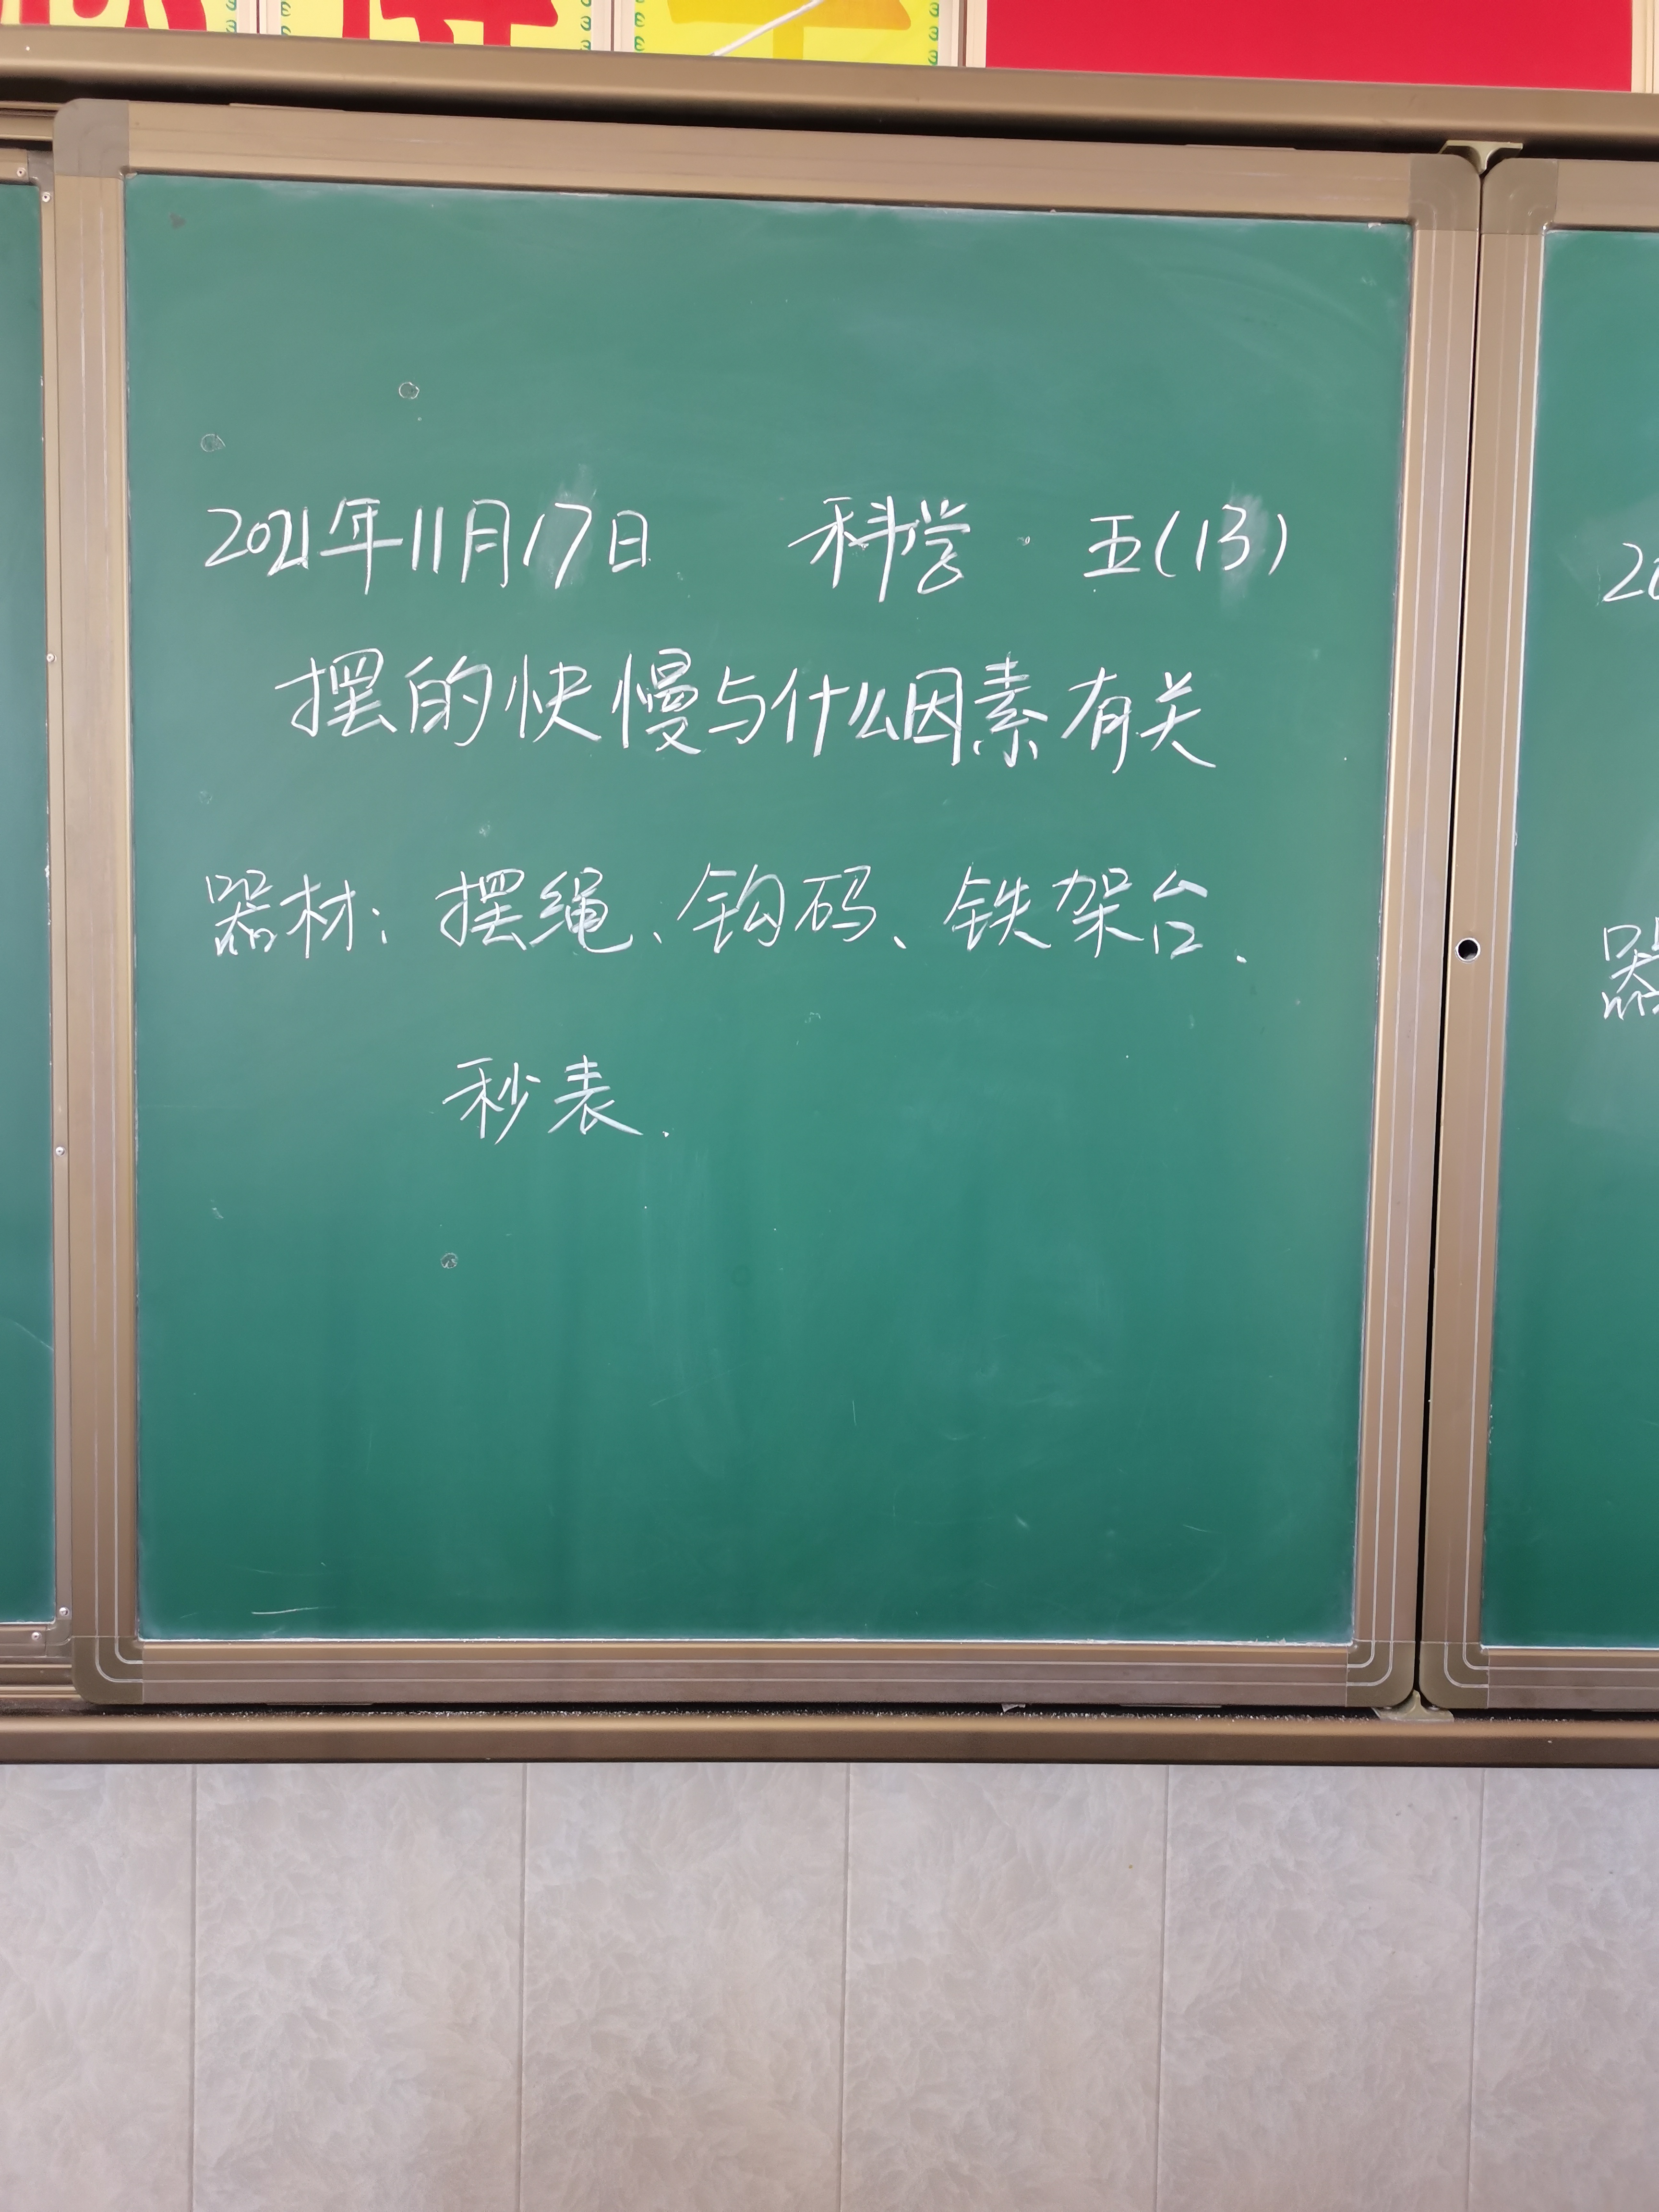 2021年11月17日 科学 · 五(13)
摆的快慢与什么因素有关
器材: 摆绳、钩码、铁架台、
秒表.
20
器